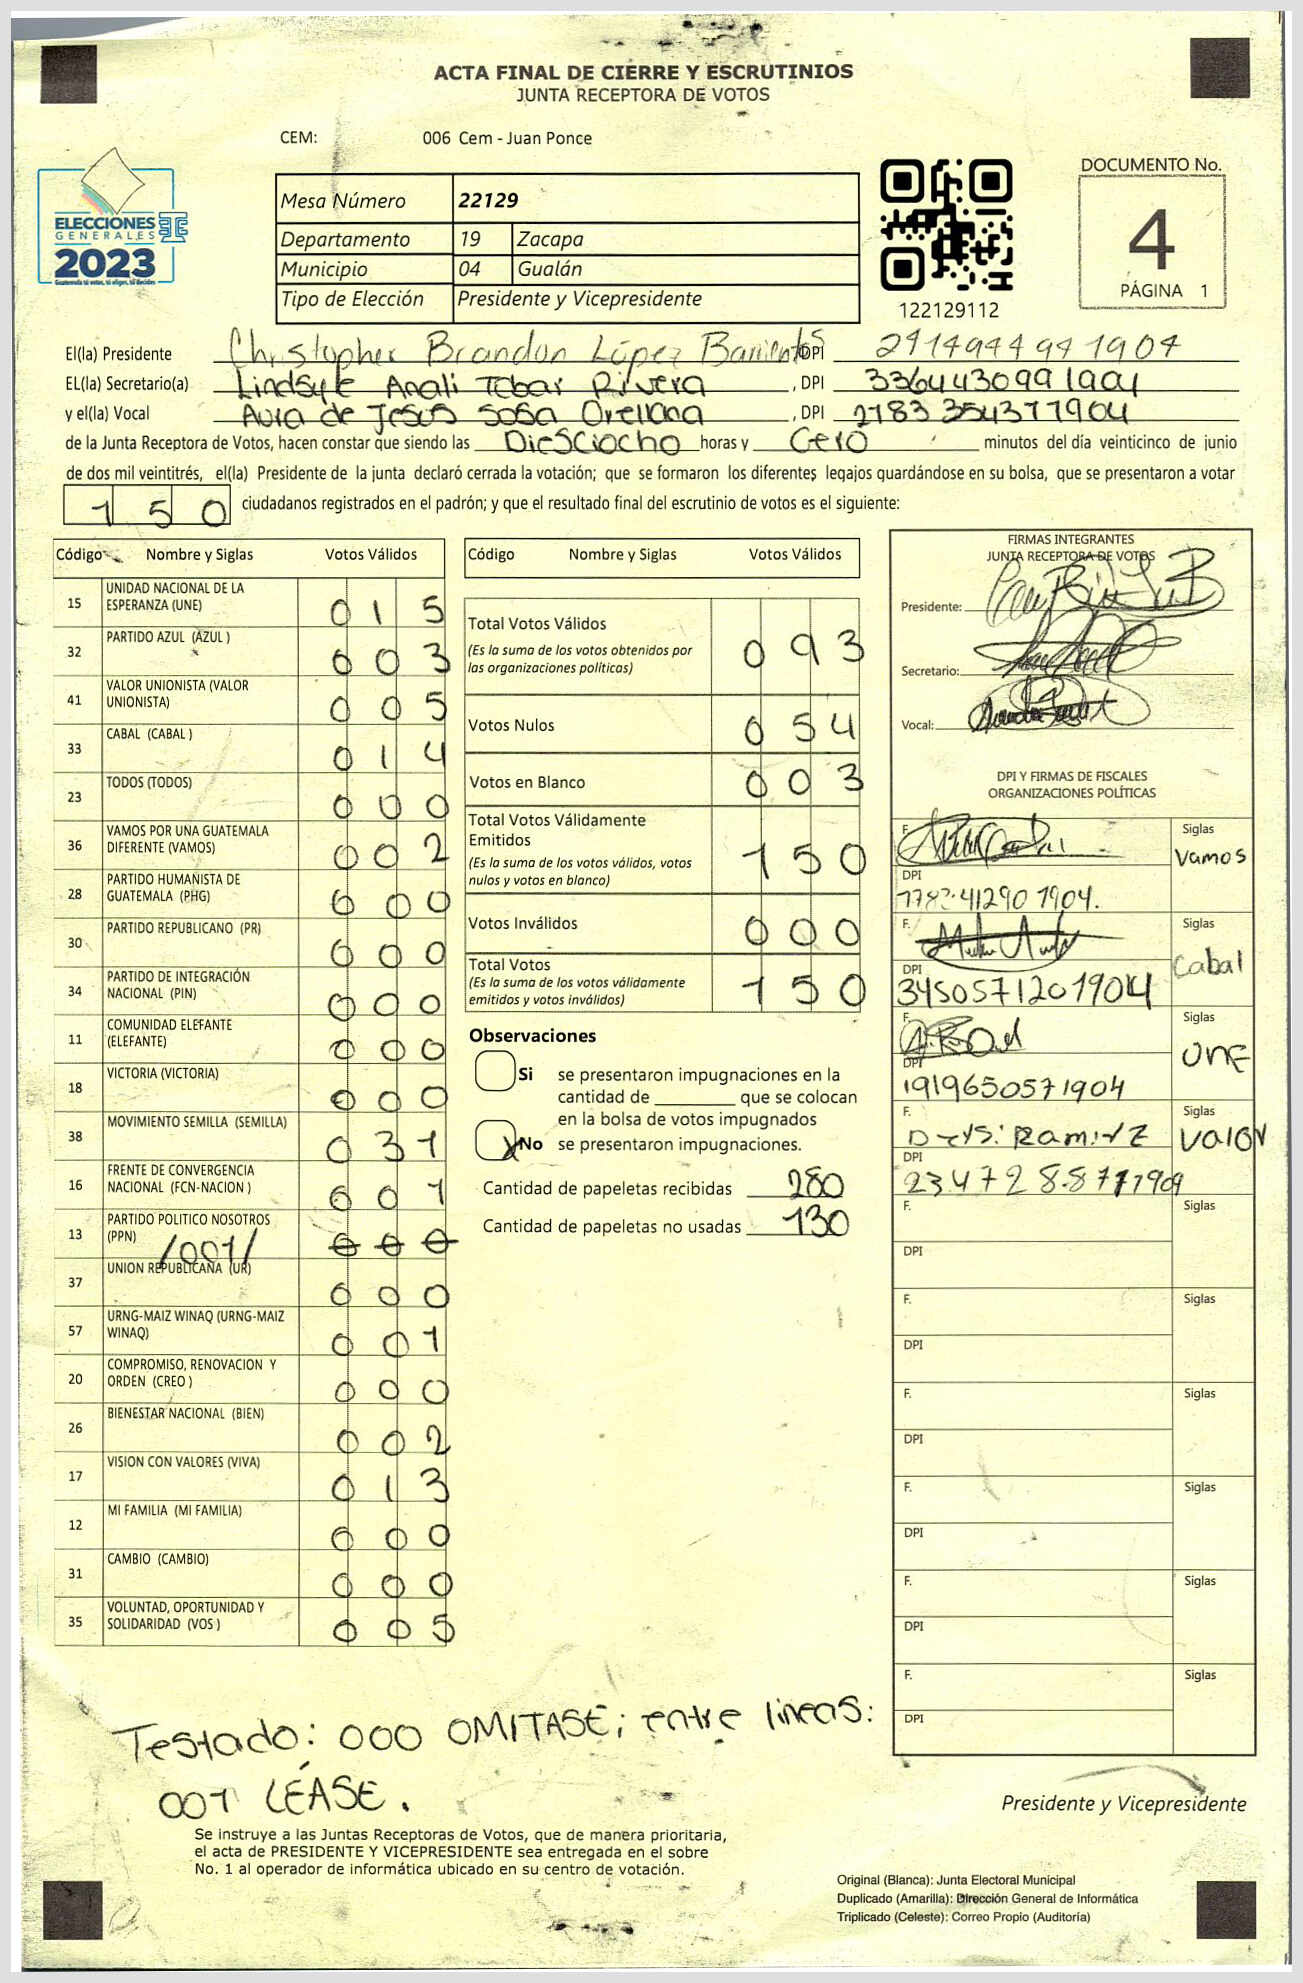 ACTA FINAL DE CIERRE Y ESCRUTINIOS
JUNTA RECEPTORA DE VOTOS
CEM: 006 Cem - Juan Ponce
ELECCIONES
GENERALES
2023
Guatemala tú votas, tú eliges, tú decides
Mesa Número 22129
Departamento 19 Zacapa
Municipio 04 Gualán
Tipo de Elección Presidente y Vicepresidente
122129112
DOCUMENTO No.
4
PÁGINA 1
El(la) Presidente Christopher Brandon López Barrientos DPI 2414944941904
EL(la) Secretario(a) Lindsyle Anali Tobar Rivera , DPI 3364430991904
y el(la) Vocal Aura de Jesus Sosa Orellana , DPI 2783354371904
de la Junta Receptora de Votos, hacen constar que siendo las DieSciocho horas y Cero minutos del día veinticinco de junio
de dos mil veintitrés, el(la) Presidente de la junta declaró cerrada la votación; que se formaron los diferentes legajos guardándose en su bolsa, que se presentaron a votar
150 ciudadanos registrados en el padrón; y que el resultado final del escrutinio de votos es el siguiente:
Código Nombre y Siglas Votos Válidos
15 UNIDAD NACIONAL DE LA
ESPERANZA (UNE) 015
32 PARTIDO AZUL (AZUL ) 003
41 VALOR UNIONISTA (VALOR
UNIONISTA) 005
33 CABAL (CABAL ) 014
23 TODOS (TODOS) 000
36 VAMOS POR UNA GUATEMALA
DIFERENTE (VAMOS) 002
28 PARTIDO HUMANISTA DE
GUATEMALA (PHG) 000
30 PARTIDO REPUBLICANO (PR) 000
34 PARTIDO DE INTEGRACIÓN
NACIONAL (PIN) 000
11 COMUNIDAD ELEFANTE
(ELEFANTE) 000
18 VICTORIA (VICTORIA) 000
38 MOVIMIENTO SEMILLA (SEMILLA) 031
16 FRENTE DE CONVERGENCIA
NACIONAL (FCN-NACION ) 001
13 PARTIDO POLITICO NOSOTROS
(PPN) /001/ 000
37 UNION REPUBLICANA (UR) 000
57 URNG-MAIZ WINAQ (URNG-MAIZ
WINAQ) 001
20 COMPROMISO, RENOVACION Y
ORDEN (CREO ) 000
26 BIENESTAR NACIONAL (BIEN) 002
17 VISION CON VALORES (VIVA) 013
12 MI FAMILIA (MI FAMILIA) 000
31 CAMBIO (CAMBIO) 000
35 VOLUNTAD, OPORTUNIDAD Y
SOLIDARIDAD (VOS ) 005
Código Nombre y Siglas Votos Válidos
Total Votos Válidos 093
(Es la suma de los votos obtenidos por
las organizaciones políticas)
Votos Nulos 054
Votos en Blanco 003
Total Votos Válidamente
Emitidos 150
(Es la suma de los votos válidos, votos
nulos y votos en blanco)
Votos Inválidos 000
Total Votos 150
(Es la suma de los votos válidamente
emitidos y votos inválidos)
Observaciones
Si se presentaron impugnaciones en la
cantidad de ________ que se colocan
en la bolsa de votos impugnados
X No se presentaron impugnaciones.
Cantidad de papeletas recibidas 280
Cantidad de papeletas no usadas 130
FIRMAS INTEGRANTES
JUNTA RECEPTORA DE VOTOS
Presidente:
Secretario:
Vocal:
DPI Y FIRMAS DE FISCALES
ORGANIZACIONES POLÍTICAS
F. Siglas
Vamos
DPI
1904.
F. Siglas
Cabal
DPI
3450571201904
F. Siglas
UNE
DPI
1919650571904
F. Siglas
Valor
DPI
F. Siglas
DPI
F. Siglas
DPI
F. Siglas
DPI
F. Siglas
DPI
F. Siglas
DPI
F. Siglas
DPI
Testado: 000 OMITASE; entre lineas:
001 LÉASE.
Presidente y Vicepresidente
Se instruye a las Juntas Receptoras de Votos, que de manera prioritaria,
el acta de PRESIDENTE Y VICEPRESIDENTE sea entregada en el sobre
No. 1 al operador de informática ubicado en su centro de votación.
Original (Blanca): Junta Electoral Municipal
Duplicado (Amarilla): Dirección General de Informática
Triplicado (Celeste): Correo Propio (Auditoría)